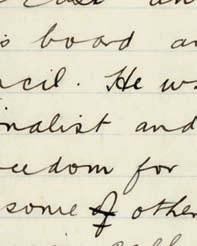 s board a
cil. He w
nalist and
eedom for
some of other